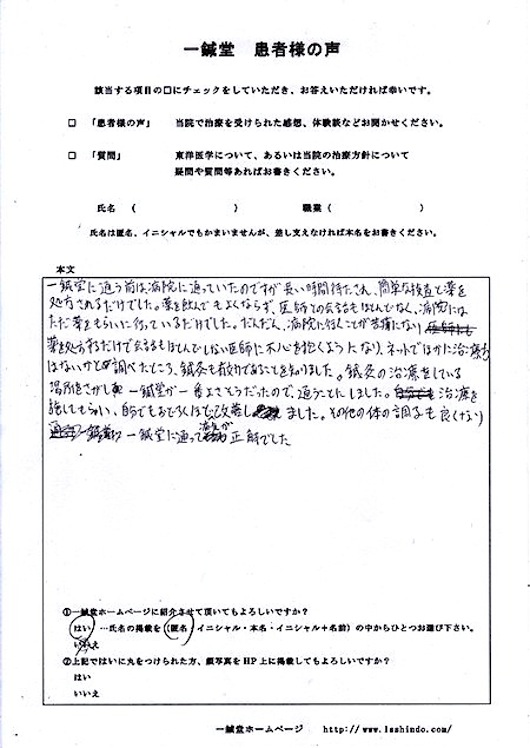 一鍼堂 患者様の声
該当する項目の□にチェックをしていただき、お答えいただければ幸いです。
□ 「患者様の声」 当院で治療を受けられた感想、体験談などお聞かせください。
□ 「質問」 東洋医学について、あるいは当院の治療方針について
疑問や質問等あればお書きください。
氏名 ( ) 職業 ( )
氏名は匿名、イニシャルでもかまいませんが、差し支えなければ本名をお書きください。
本文
一鍼堂に通う前は、病院に通っていたのですが長い時間待たされ、簡単な検査と薬を
処方されるだけでした。薬を飲んでもよくならず、医師との会話もほとんどなく、病院には
ただ薬をもらいに行っているだけでした。だんだん、病院に行くことが苦痛になり
薬を処方するだけで会話もほとんどしない医師に不心を抱くようになり、ネットでほかに治療
はないかと調べたところ、鍼灸も有効であることを知りました。鍼灸の治療をしている
場所をさがし 一鍼堂が一番よさそうだったので、通うことにしました。 治療を
施してもらい、自分でもおどろくほど改善し ました。その他の体の調子も良くなり
一鍼堂に通って 正解でした
①一鍼堂ホームページに紹介させて頂いてもよろしいですか?
はい …氏名の掲載を (匿名・イニシャル・本名・イニシャル+名前) の中からひとつお選び下さい。
いいえ
②上記ではいに丸をつけられた方、顔写真をHP上に掲載してもよろしいですか?
はい
いいえ
一鍼堂ホームページ http://www.1sshindo.com/